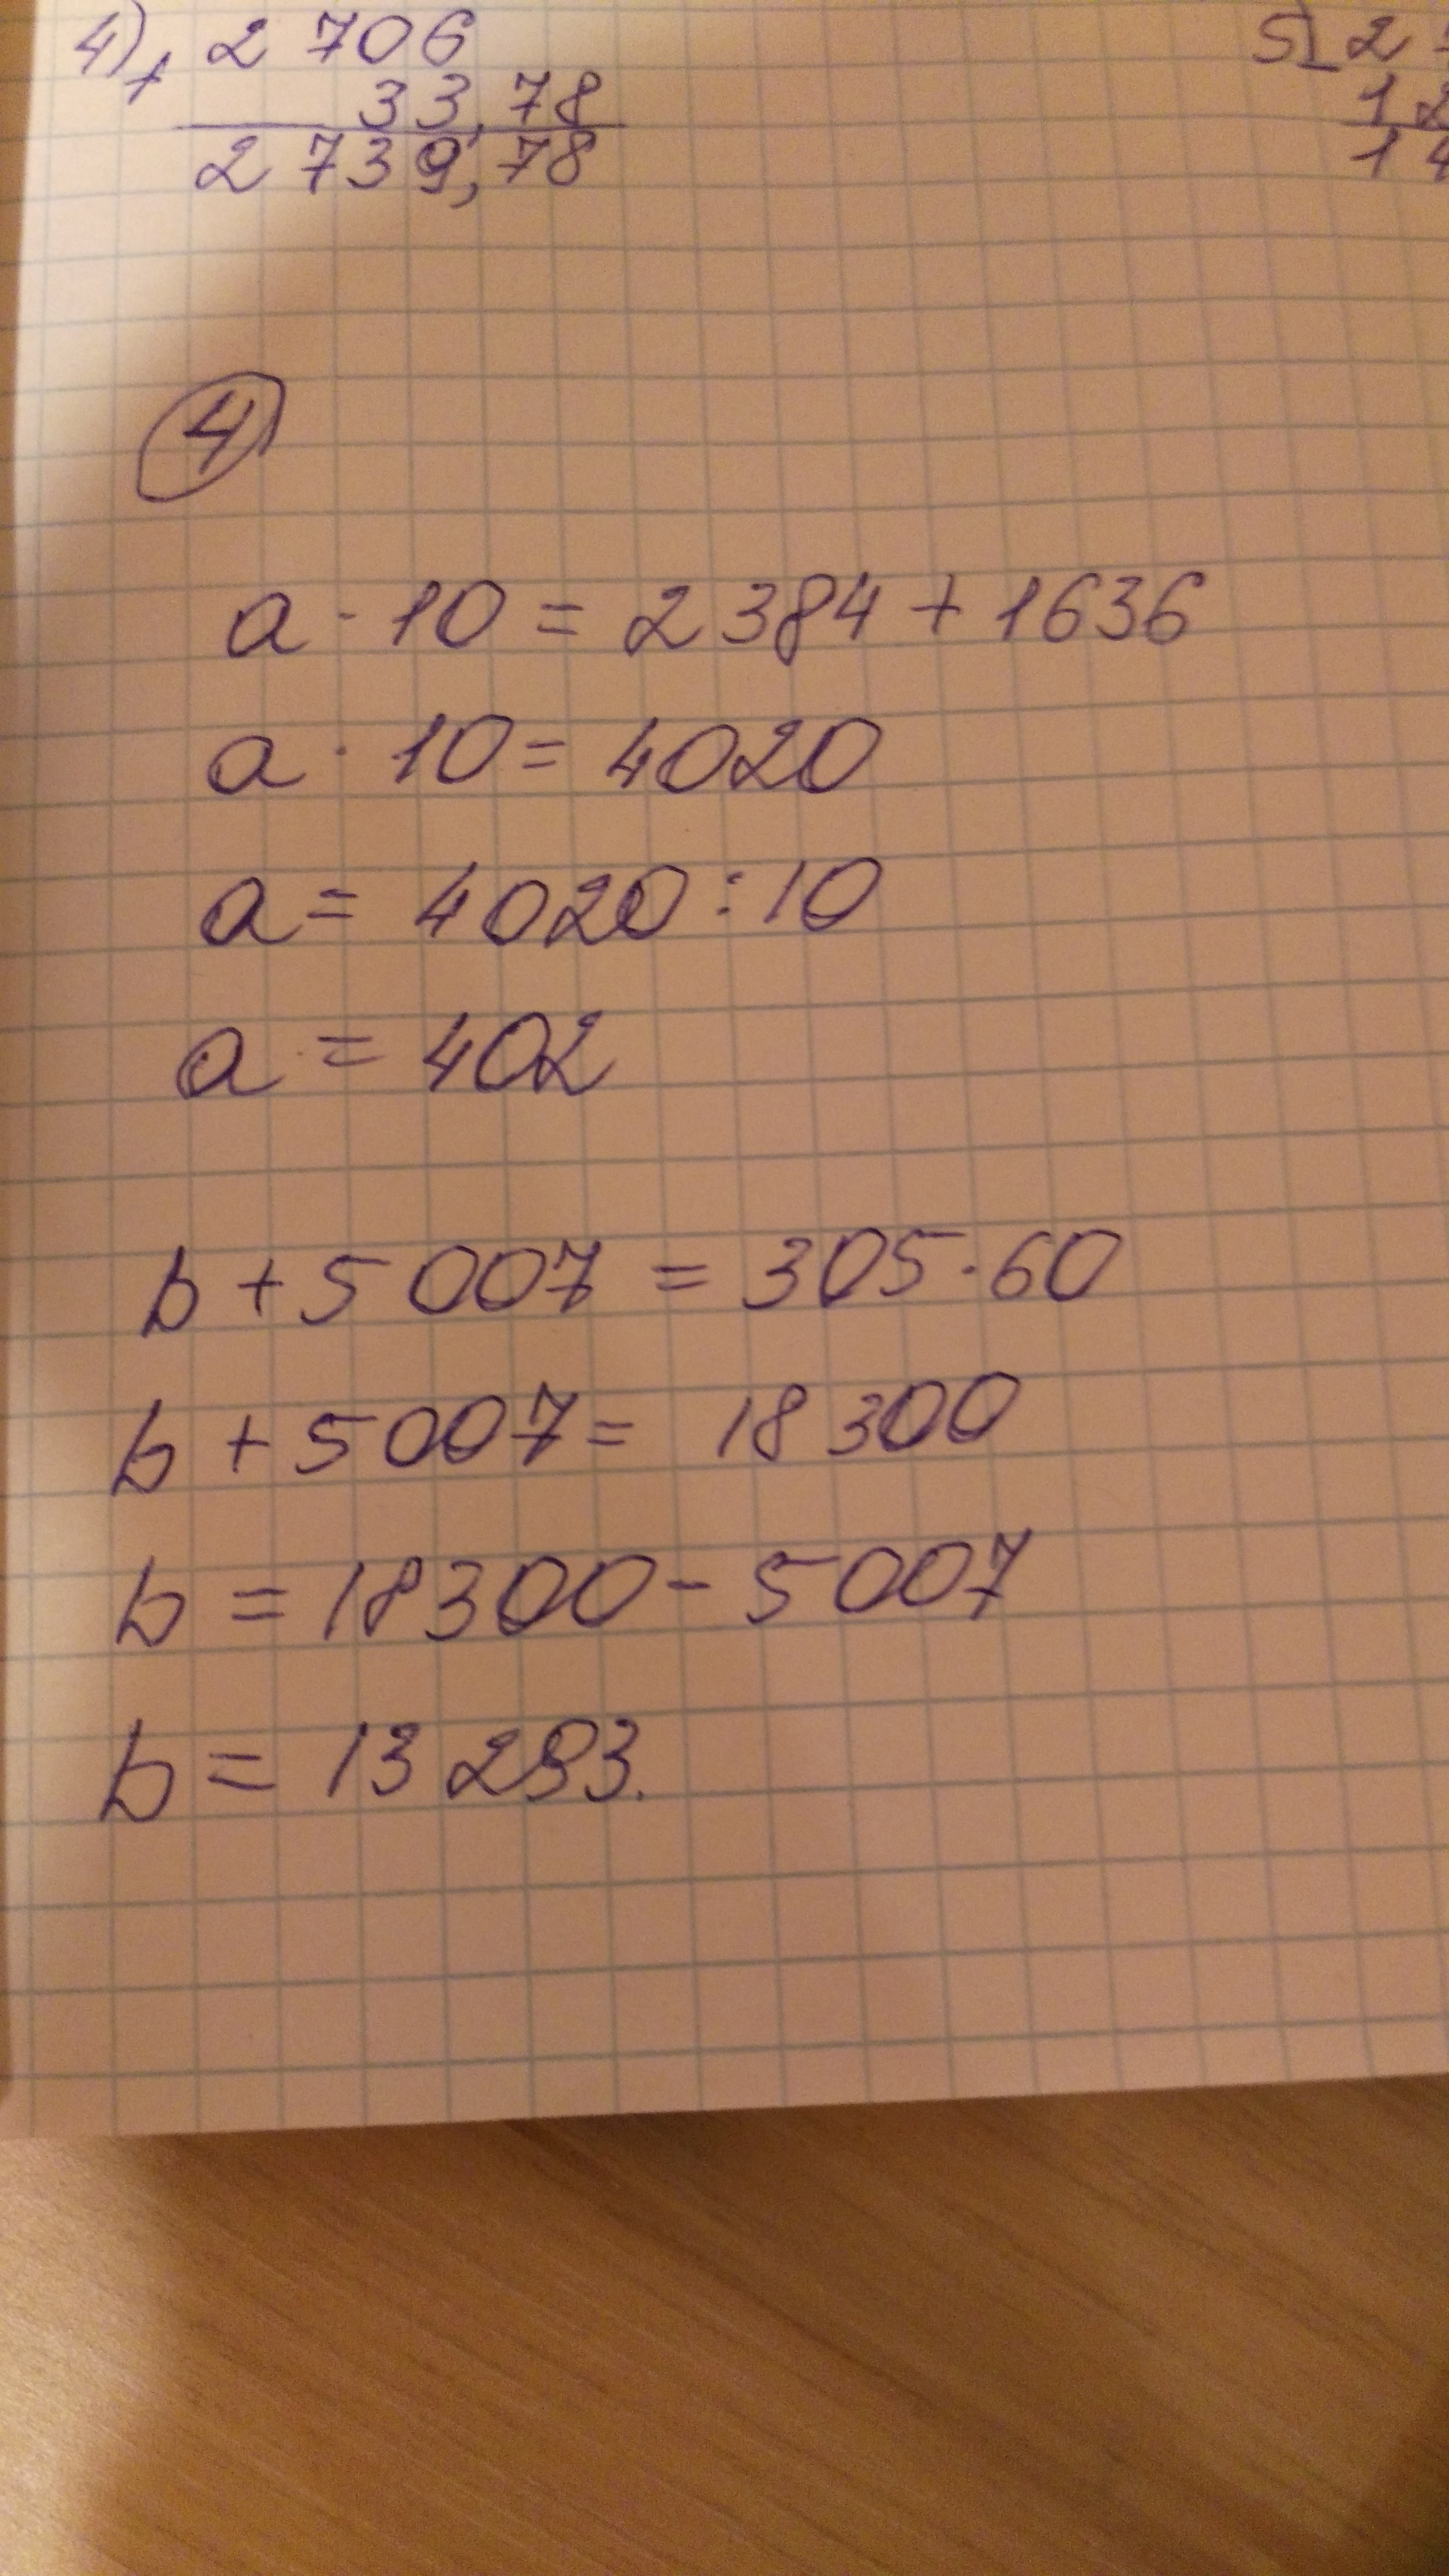 4) + 2 706
33,78
2 739,78
5) - 2
1 2
1 4
4
a · 10 = 2 384 + 1636
a · 10 = 4020
a = 4020 : 10
a = 402
b + 5 007 = 305 · 60
b + 5 007 = 18 300
b = 18300 - 5 007
b = 13 293.